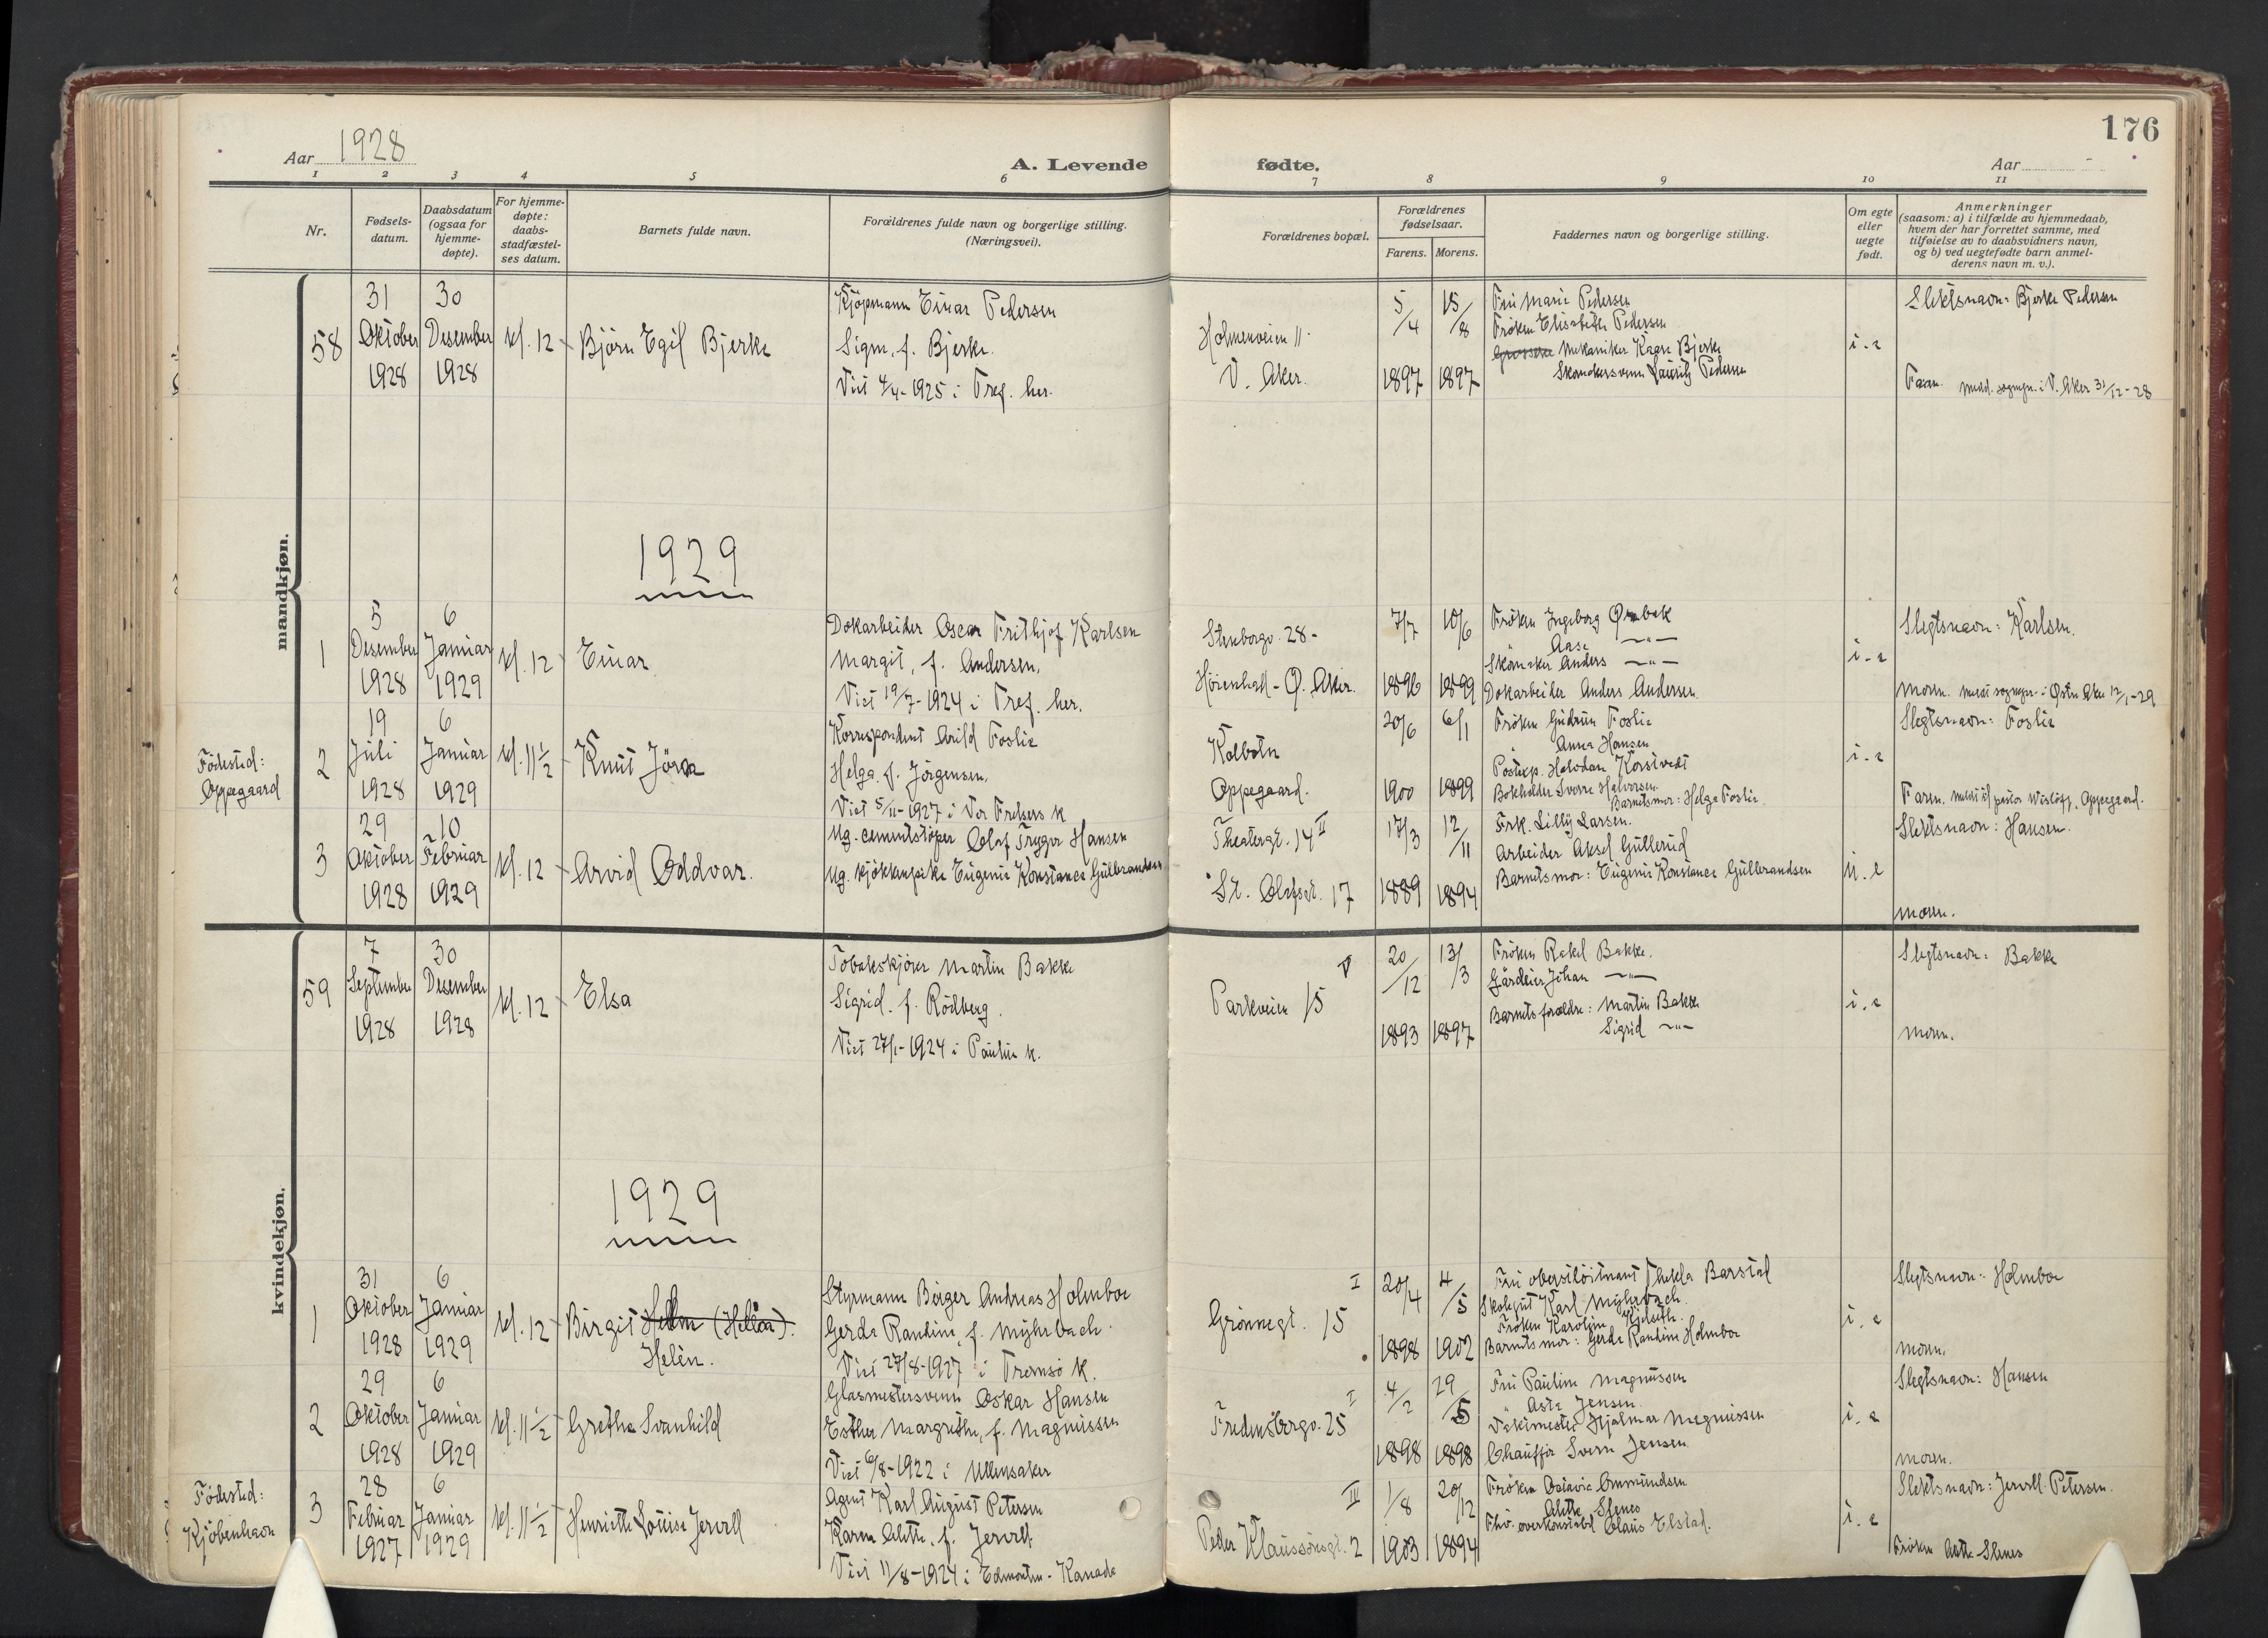 Aar 1928
A. Levende
fødte.
Aar
176
1 2 3 4 5 6 7 8 9 10 11
Nr.
Fødsels-
datum.
Daabsdatum
(ogsaa for
hjemme-
døpte).
For hjemme-
døpte:
daabs-
stadfæstel-
ses datum.
Barnets fulde navn.
Forældrenes fulde navn og borgerlige stilling.
(Næringsvei).
Forældrenes bopæl.
Forældrenes
fødselsaar.
Farens. Morens.
Faddernes navn og borgerlige stilling.
Om egte
eller
uegte
født.
Anmerkninger
(saasom: a) i tilfælde av hjemmedaab,
hvem der har forrettet samme, med
tilføielse av to daabsvidners navn,
og b) ved uegtefødte barn anmel-
derens navn m. v.).
mandkjøn.
58
31
Oktober
1928
30
Desember
1928
kl. 12
Björn Egil Bjerke
Kjöpmann Einar Pedersen
Sign. f. Bjerke.
Viet 4/4-1925 i Tref. her.
Holmenveien 11.
V. Aker.
5/4
1897
15/8
1897
Fru Marie Pedersen
Fröken Elisabeth Pedersen
Mekaniker Kaare Bjerke
Skomakersvenn Lauritz Pedersen
i. e
Slektsnavn: Bjerke Pedersen
Faren. Medd. sognepr. i V. Aker 31/12-28
1929
1
5
Desember
1928
6
Januar
1929
kl. 12
Einar
Dokarbeider Oscar Frithjof Karlsen
Margit, f. Andersen.
Viet 19/7-1924 i Tref. her.
Stenborgv. 28-
Ø. Aker.
7/7
1896
10/6
1899
Fröken Ingeborg Ørebek
" Aase —"—
Skomaker Anders —"—
Dokarbeider Anders Andersen
i. e
Slegtsnavn: Karlsen.
Moren. Meldt sognepr. i Østre Aker 12/1-29
Födested:
Oppegaard
2
19
Juli
1928
6
Januar
1929
kl. 11 1/2
Knut Jörn
Korrespondent Arild Foslie
Helga. f. Jörgensen.
Viet 5/11-1927 i Vor Frelsers k
Kolbotn
Oppegaard.
20/6
1900
6/1
1899
Fröken Gudrun Foslie
" Anna Hansen
Postexp. Halvdan Korstvedt
Bokholder Sverre Halvorsen
Barnets mor: Helga Foslie.
i. e
Slegtsnavn: Foslie
Faren. Meldt til pastor Wislöff, Oppegaard.
3
29
Oktober
1928
10
Februar
1929
kl. 12
Arvid Oddvar.
Ug. cementstöper Olaf Trygve Hansen
Ug. kjökkenpike Eugenie Konstance Gulbrandsen
Theatergt. 14 II
St. Olafsgt. 17
17/3
1889
12/11
1894
Frk. Lilly Larsen.
Arbeider Aksel Gullerud
Barnets mor: Eugenie Konstance Gulbrandsen
u. e
Slektsnavn: Hansen.
Moren.
kvindekjøn.
59
7
September
1928
30
Desember
1928
kl. 12
Elsa
Tobakskjörer Martin Bakke
Sigrid. f. Rödberg.
Viet 27/1-1924 i Paulus k.
Parkveien 15 V
20/12
1893
13/3
1897
Fröken Rakel Bakke.
Gårdeier Johan —"—
Barnets forældre: Martin Bakke
Sigrid —"—
i. e
Slegtsnavn: Bakke
Moren.
1929
1
31
Oktober
1928
6
Januar
1929
kl. 12
Birgit Helen (Hellen).
Helén.
Styrmann Birger Andreas Holmboe
Gerda Randine, f. Myhrbach.
Viet 27/8-1927 i Tromsö k.
Grönnegt. 15 I
20/4
1898
4/5
1902
Fru oberstlöitnant Thekla Barstad
Karl Myhrbach.
Fröken Karoline Kjelseth.
Barnets mor: Gerda Randine Holmboe
i. e
Slegtsnavn: Holmboe
Moren.
2
29
Oktober
1928
6
Januar
1929
kl. 11 1/2
Grethe Svanhild
Glasmestersvenn Oskar Hansen
Esther Margrethe, f. Magnussen
Viet 6/8-1922 i Ullensaker
Fredensborgv. 25 I
4/2
1898
29/5
1898
Fru Pauline Magnussen
" Asta Jensen.
Hjalmar Magnussen
Chaufför Sverre Jensen
i. e
Slegtsnavn: Hansen
Moren.
Födested:
Kjöbenhavn
3
28
Februar
1927
6
Januar
1929
kl. 11 1/2
Henriette Louise Jervell
Agent Karl August Petersen
Karen Alethe, f. Jervell
Viet 11/8-1924 i Edmonton - Kanada
Peder Klaussönsgt. 2 III
1/8
1903
20/12
1894
Fröken Octavie Ommundsen
" Alethe Stenes
Fhv. overkonstabel Claus Elstad.
i. e
Slektsnavn: Jervell Petersen.
Fröken Alethe Stenes